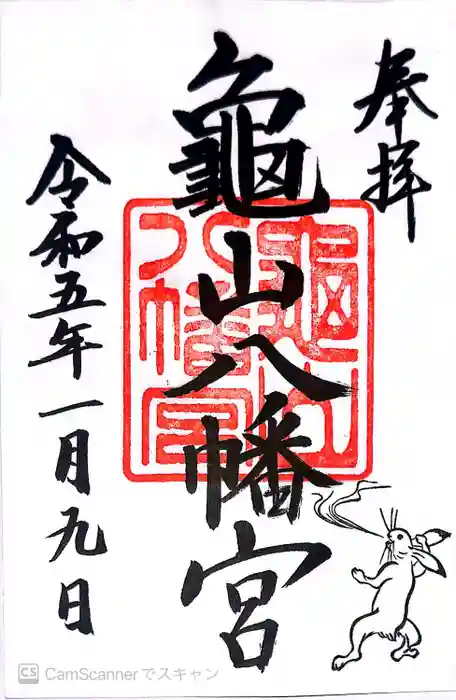 奉拝
龜山八幡宮
令和五年一月九日
龜山
八幡宮
CS CamScannerでスキャン